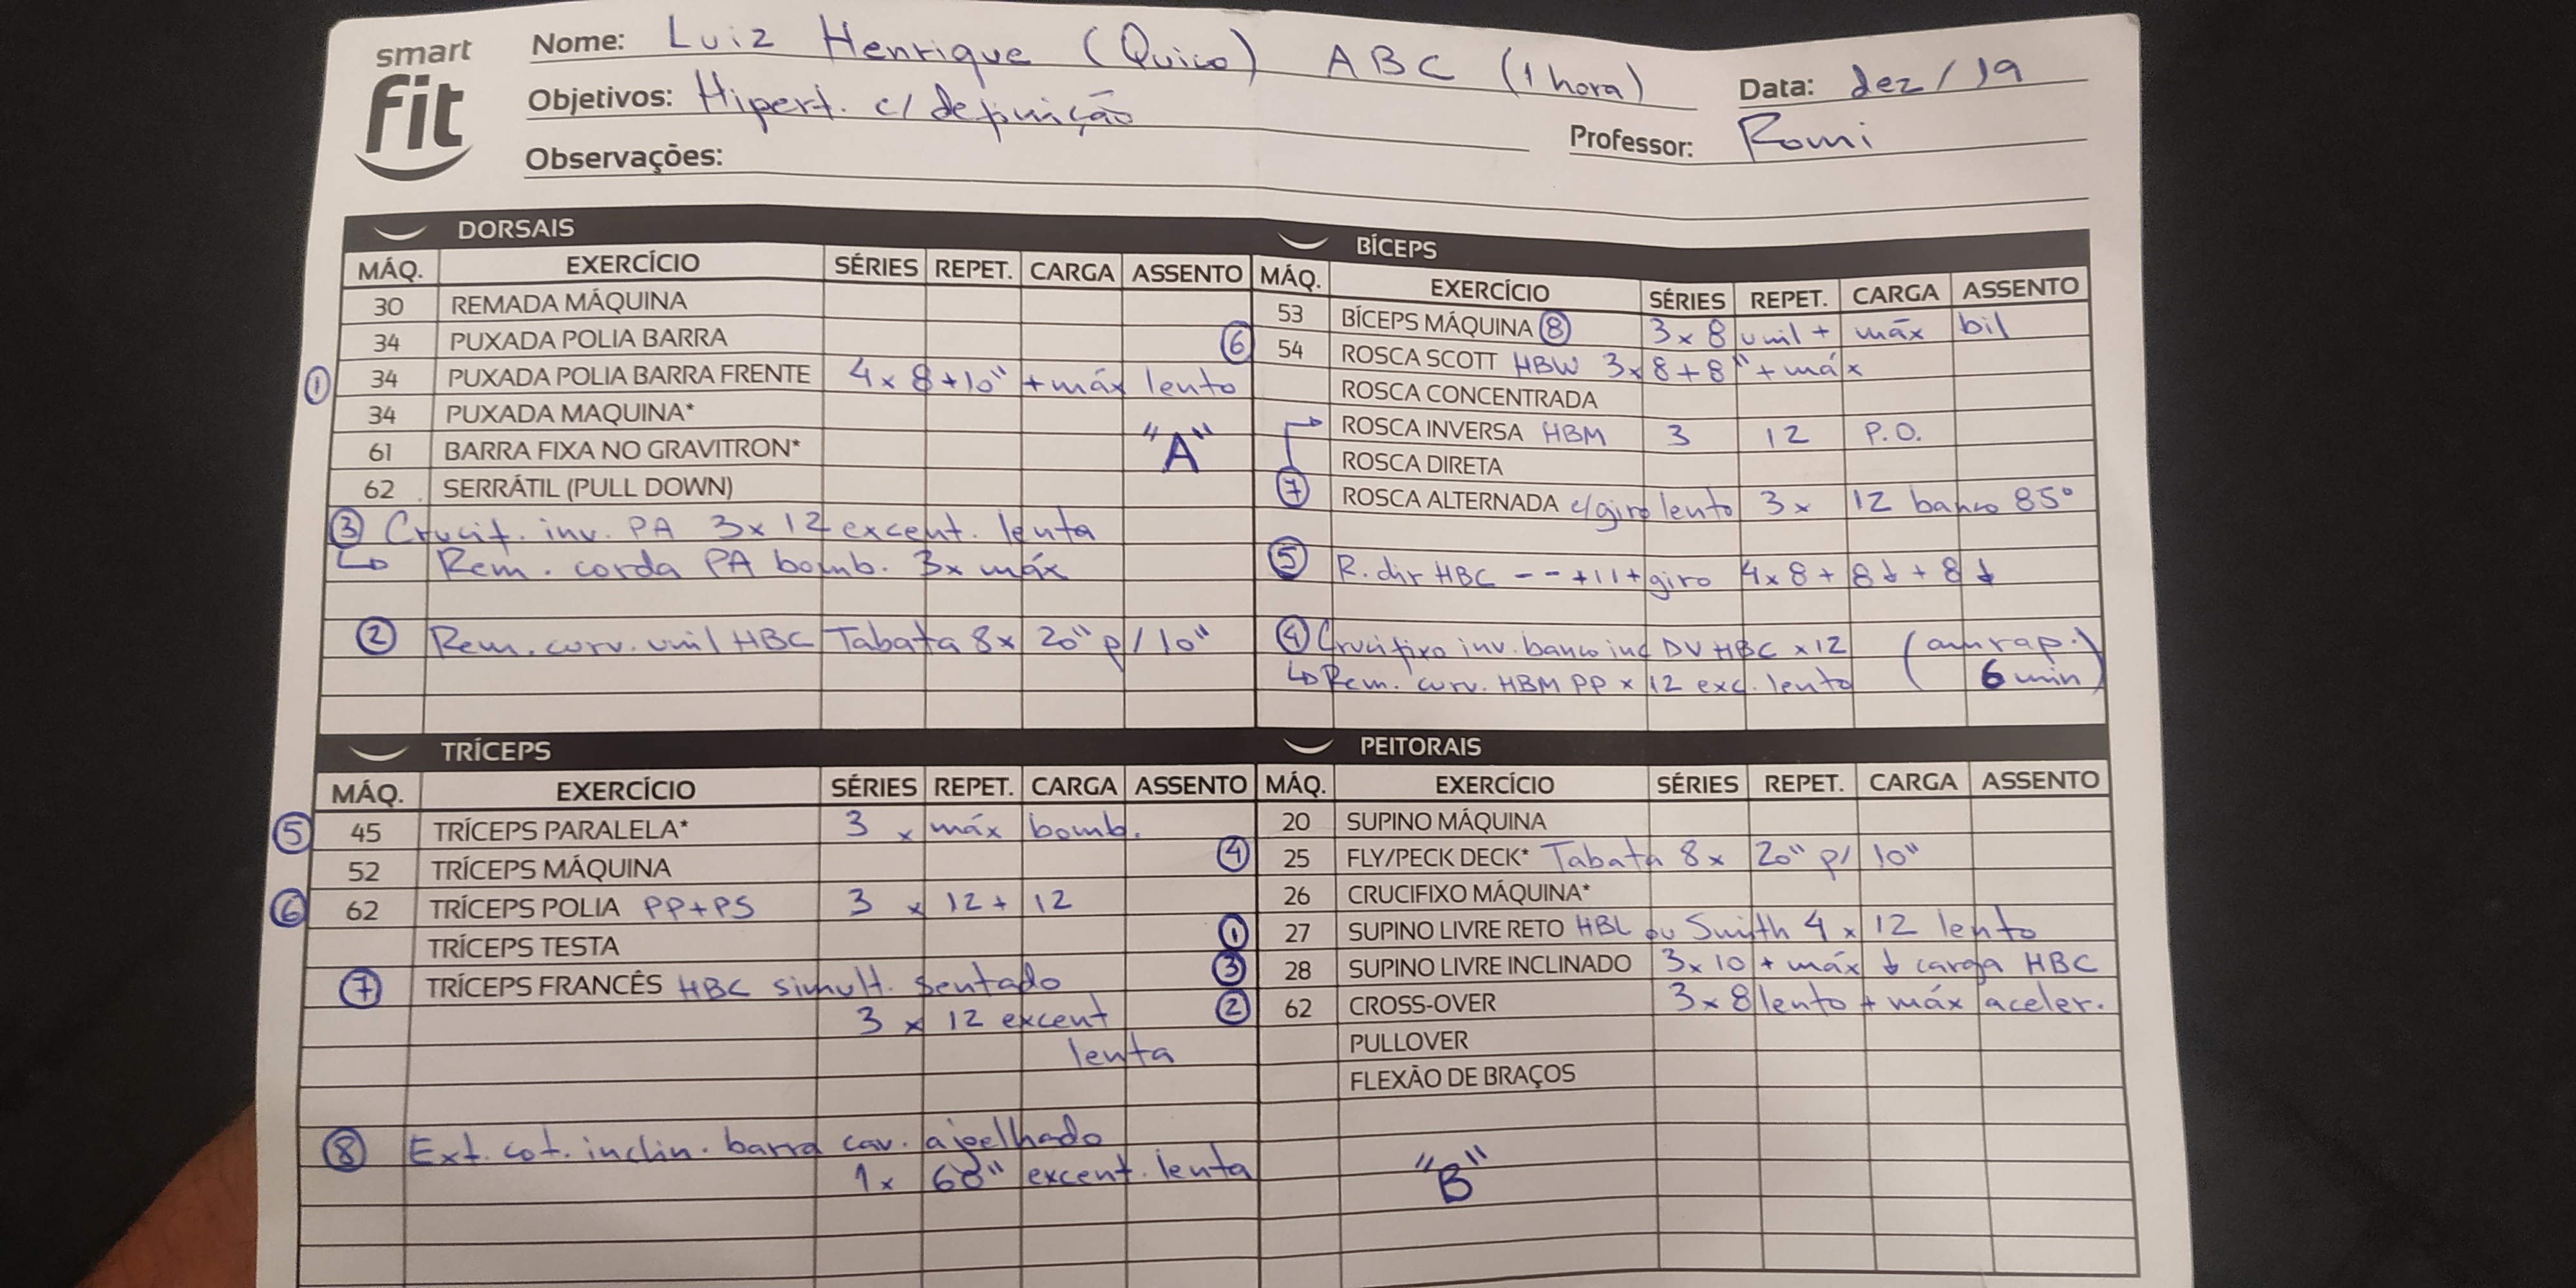 smart
fit
Nome: Luiz Henrique (Quico) ABC (1 hora)
Data: dez/19
Objetivos: Hipert. c/ definição
Professor: Romi
Observações:
DORSAIS
MÁQ. EXERCÍCIO SÉRIES REPET. CARGA ASSENTO
30 REMADA MÁQUINA
34 PUXADA POLIA BARRA
① 34 PUXADA POLIA BARRA FRENTE 4x 8+10" +máx lento
34 PUXADA MAQUINA*
61 BARRA FIXA NO GRAVITRON*
"A"
62 SERRÁTIL (PULL DOWN)
③ Crucif. inv. PA 3x12 excent. lenta
↳ Rem. corda PA bomb. 3x máx
② Rem. curv. unil HBC Tabata 8x 20" p/ 10"
BÍCEPS
MÁQ. EXERCÍCIO SÉRIES REPET. CARGA ASSENTO
53 BÍCEPS MÁQUINA ⑧ 3x8 unil + máx bil
⑥ 54 ROSCA SCOTT HBW 3x8+8"+máx
ROSCA CONCENTRADA
ROSCA INVERSA HBM 3 12 P.O.
ROSCA DIRETA
⑦ ROSCA ALTERNADA c/giro lento 3x 12 banco 85°
⑤ R. dir HBC --+11+giro 4x8+8↓+8↓
④ Crucifixo inv. banco inc DV HBC x12 (amrap.)
↳ Rem. curv. HBM PP x12 exc. lento 6 min
TRÍCEPS
MÁQ. EXERCÍCIO SÉRIES REPET. CARGA ASSENTO
⑤ 45 TRÍCEPS PARALELA* 3 x máx bomb.
52 TRÍCEPS MÁQUINA
⑥ 62 TRÍCEPS POLIA PP+PS 3 x 12+12
TRÍCEPS TESTA
⑦ TRÍCEPS FRANCÊS HBC simult. sentado
3 x 12 excent
lenta
⑧ Ext. cot. inclin. barra cav. ajoelhado
1x 60" excent. lenta
PEITORAIS
MÁQ. EXERCÍCIO SÉRIES REPET. CARGA ASSENTO
20 SUPINO MÁQUINA
④ 25 FLY/PECK DECK* Tabata 8x 20" p/ 10"
26 CRUCIFIXO MÁQUINA*
① 27 SUPINO LIVRE RETO HBL ou Smith 4x12 lento
③ 28 SUPINO LIVRE INCLINADO 3x10 + máx ↓ carga HBC
② 62 CROSS-OVER 3x8 lento + máx aceler.
PULLOVER
FLEXÃO DE BRAÇOS
"B"